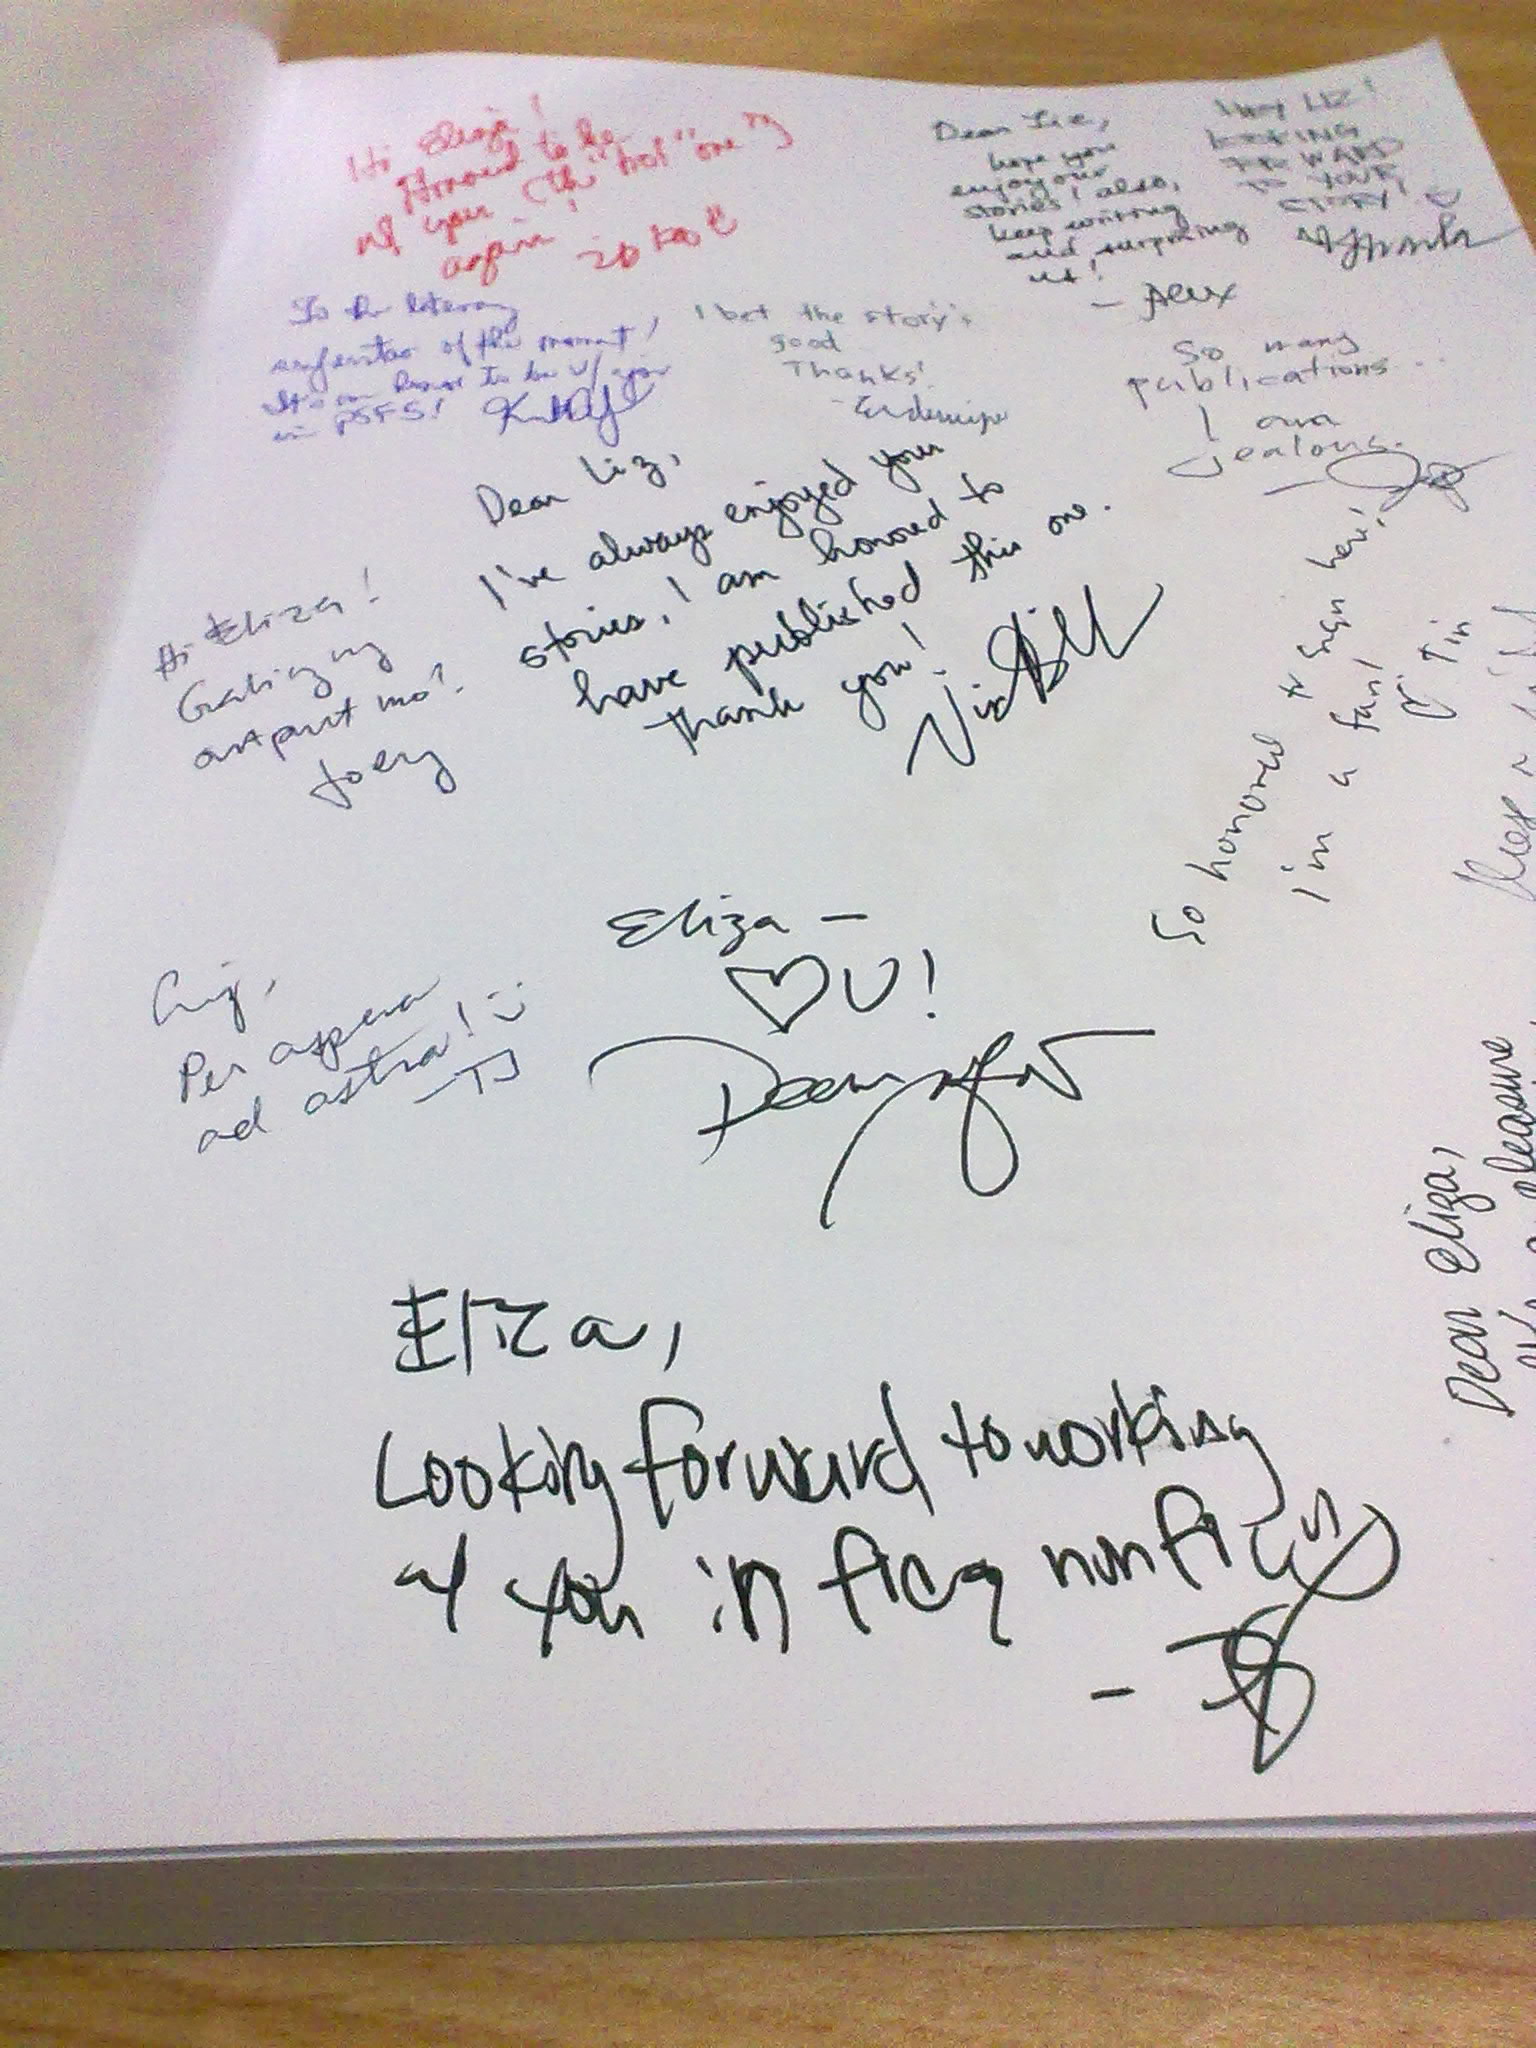 Hi Eliza!
Honored to be
w/ you (the "hot" one)
again!
To the literary
superstar of the moment,
It's an honor to be w/ you
in PSF5!
I bet the story's
good
Thanks!
Dear Liz,
hope you
enjoy our
stories! also,
keep writing
and surprising
us!
- Alex
Hey LIZ!
LOOKING
FORWARD
TO YOUR
STORY!
So many
publications...
I am
jealous.
Dear Liz,
I've always enjoyed your
stories, I am honored to
have published this one.
Thank you!
Hi Eliza!
Galing ng
art part mo!
Joey
So honored to sign here!
I'm a fan!
Tin
Eliza -
♡ U!
Liz,
Per aspera
ad astra!
- TJ
Eliza,
Looking forward to working
w/ you in fic & nonfic
Dear Eliza,
a pleasure